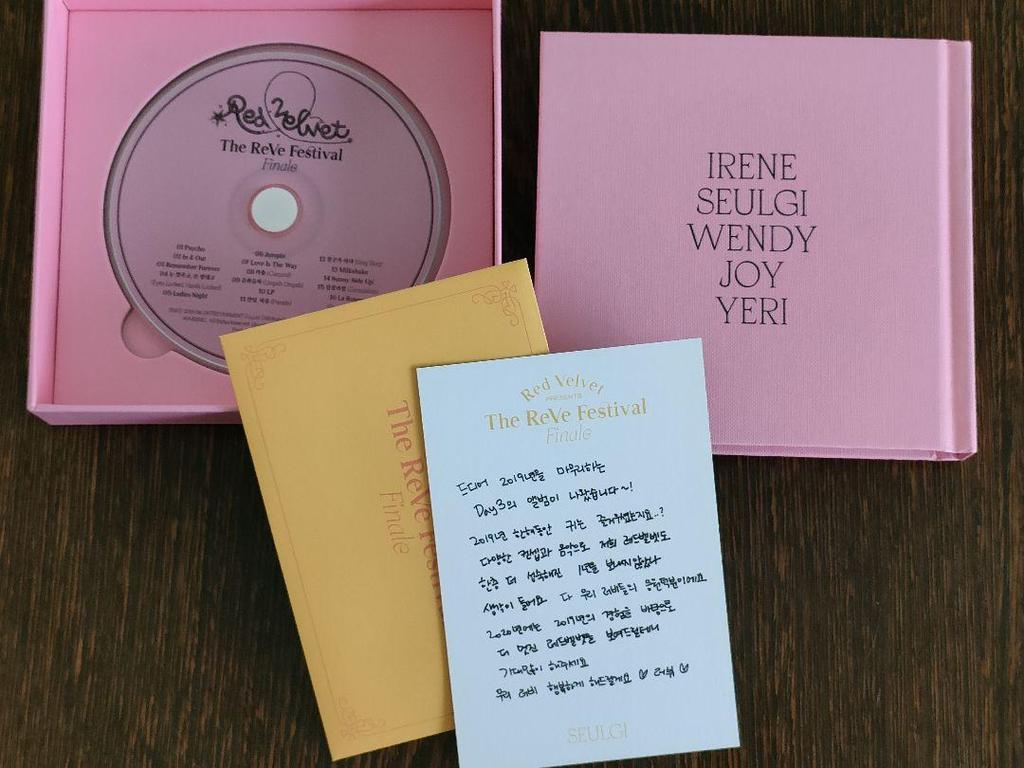 Red Velvet
The ReVe Festival
Finale
01 Psycho
02 In & Out
03 Remember Forever
04 눈 맞추고, 손 맞대고
(Eyes Locked, Hands Locked)
05 Ladies Night
06 Jumpin'
07 Love Is The Way
08 카풀 (Carpool)
09 음파음파 (Umpah Umpah)
10 LP
11 안녕, 여름 (Parade)
12 친구가 아냐 (Bing Bing)
13 Milkshake
14 Sunny Side Up!
15 짐살라빔 (Zimzalabim)
16 La Rouge
IRENE
SEULGI
WENDY
JOY
YERI
The ReVe Festival
Finale
Red Velvet
PRESENTS
The ReVe Festival
Finale
드디어 2019년을 마무리하는
Day3의 앨범이 나왔습니다~!
2019년 한해동안 귀는 즐거우셨는지요..?
다양한 컨셉과 음악으로 저희 레드벨벳도
한층 더 성숙해진 1년을 보내지않았나
생각이 들어요 다 우리 러비들의 응원덕분이에요
2020년에는 2019년의 경험을 바탕으로
더 멋진 레드벨벳을 보여드릴테니
기대많이 해주세요
우리 러비 행복하게 해드릴게요 ♡ 러뷰 ♡
SEULGI